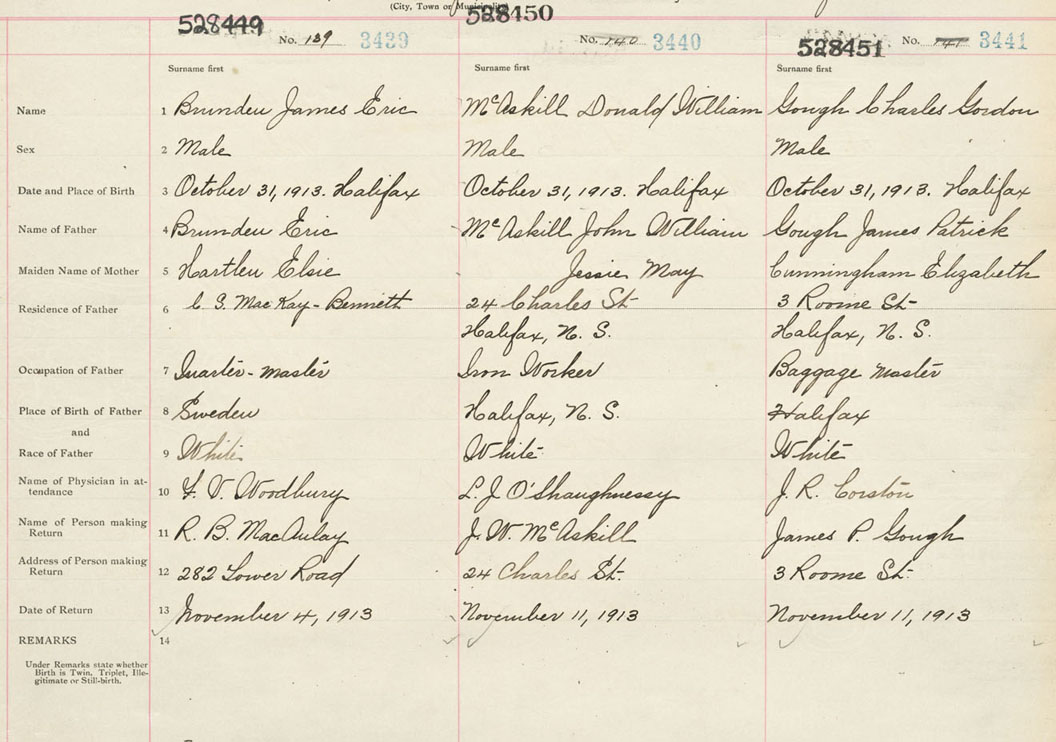 (City, Town or Municipality)
528449 528450
No. 139 3439 No. 140 3440 528451 No. 141 3441
Surname first Surname first Surname first
Name 1 Brunden James Eric McAskill Donald William Gough Charles Gordon
Sex 2 Male Male Male
Date and Place of Birth 3 October 31, 1913. Halifax October 31, 1913. Halifax October 31, 1913. Halifax
Name of Father 4 Brunden Eric McAskill John William Gough James Patrick
Maiden Name of Mother 5 Hartlen Elsie Jessie May Cunningham Elizabeth
Residence of Father 6 C. S. MacKay-Bennett 24 Charles St 3 Roome St-
Halifax, N. S. Halifax, N. S.
Occupation of Father 7 Quarter-master Iron Worker Baggage Master
Place of Birth of Father 8 Sweden Halifax, N. S. Halifax
and
Race of Father 9 White White White
Name of Physician in at-
tendance 10 V. Woodbury L. J O'Shaughnessy J. R. Corston
Name of Person making
Return 11 R. B. MacAulay J. W. McAskill James P. Gough
Address of Person making
Return 12 282 Lower Road 24 Charles St. 3 Roome St-
Date of Return 13 November 4, 1913 November 11, 1913 November 11, 1913
REMARKS 14
Under Remarks state whether
Birth is Twin, Triplet, Ille-
gitimate or Still-birth.